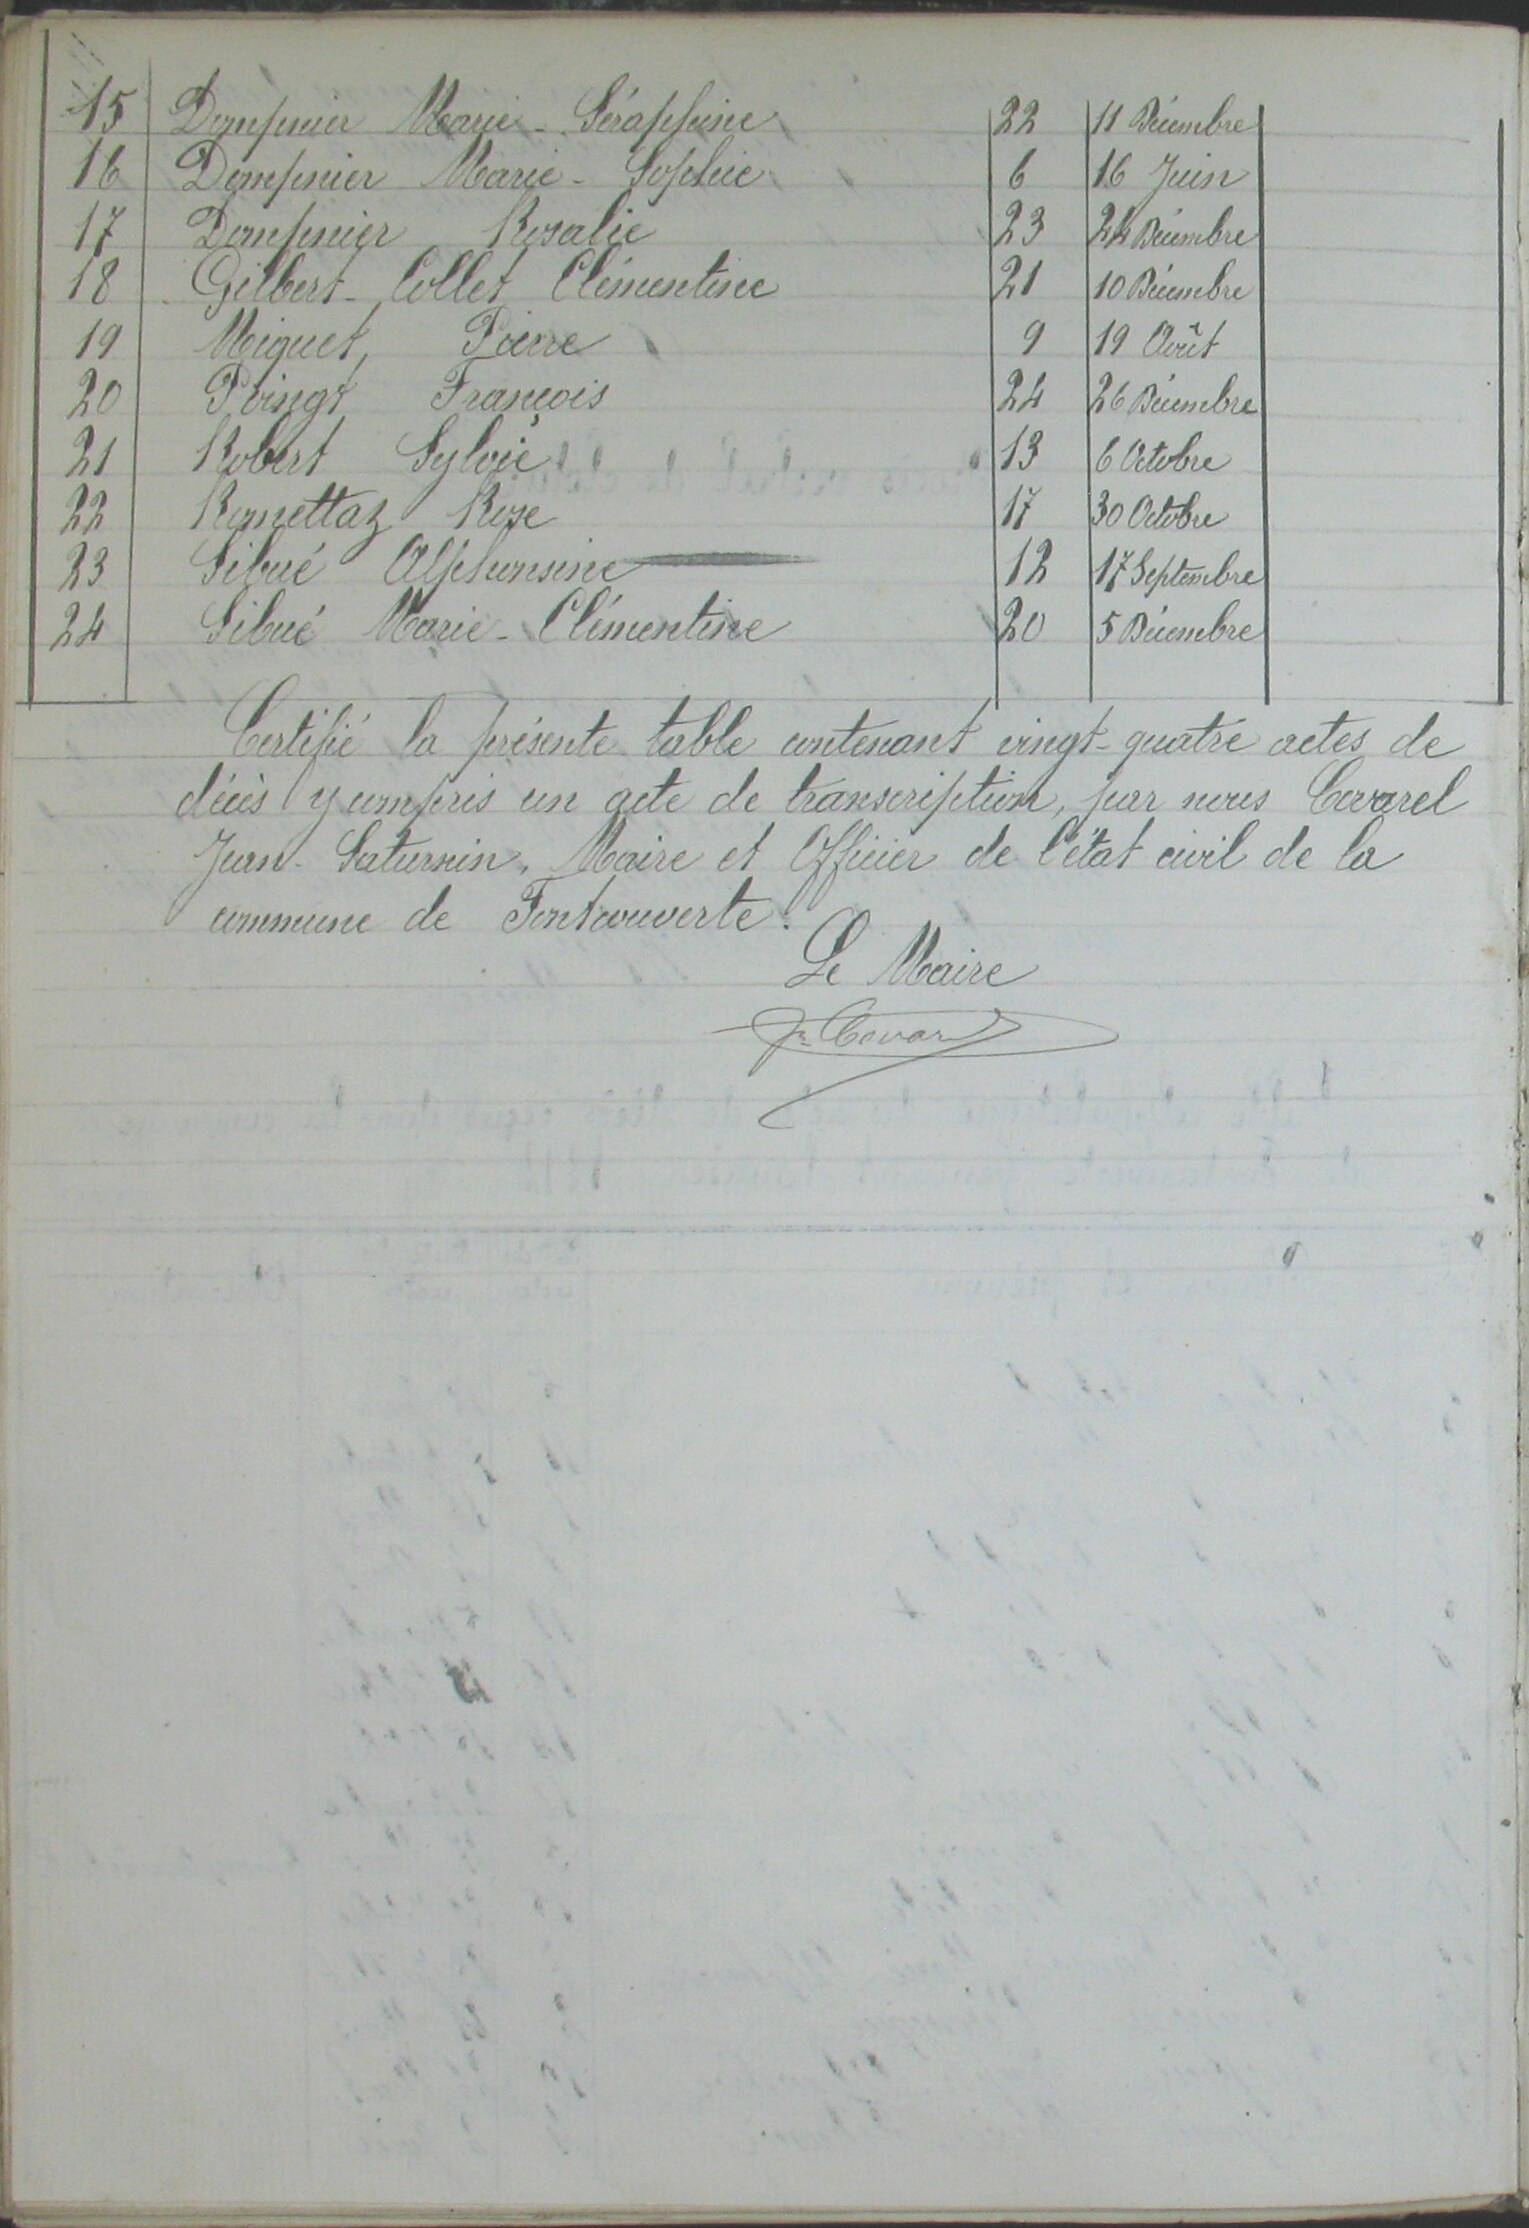 15 Dompnier Marie-Séraphine 22 11 Décembre
16 Dompnier Marie-Sophie 6 16 Juin
17 Dompnier Rosalie 23 24 Décembre
18 Gilbert-Collet Clémentine 21 10 Décembre
19 Miquet, Pierre 9 19 Août
20 Poingt François 24 26 Décembre
21 Robert Sylvie 13 6 Octobre
22 Ramettaz Rose 17 30 Octobre
23 Sibué Alphonsine 12 17 Septembre
24 Sibué Marie-Clémentine 20 5 Décembre
Certifié la présente table contenant vingt-quatre actes de
décès y compris un acte de transcription, par nous Covarel
Jean-Saturnin, Maire et Officier de l'état civil de la
commune de Fontcouverte.
Le Maire